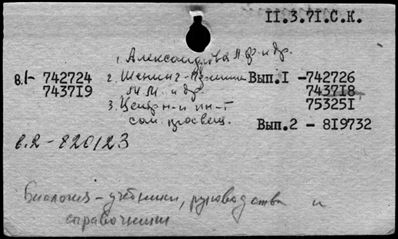 II.3.7I.С.К.
1. Александрова Л.Ф. и др.
в.I- 742724 2. Шенинг- Вып.I -742726
743719 М.М. и др. 743718
3. Центр. н-и ин-т 75325I
сан. просвещ. Вып.2 - 819732
в.2-820123
Биология - учебники, руководства и
справочники